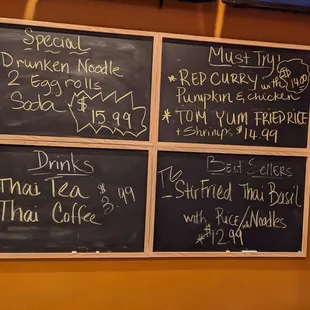 Special
Drunken Noodle
2 Egg rolls
Soda
$15.99
Must Try!
* RED CURRY with
Pumpkin & chicken
* TOM YUM FRIED RICE
+ Shrimps $14.99
Drinks
Thai Tea
Thai Coffee
$3.99
Best Sellers
- Stir Fried Thai Basil
with Rice/Noodles
* $12.99